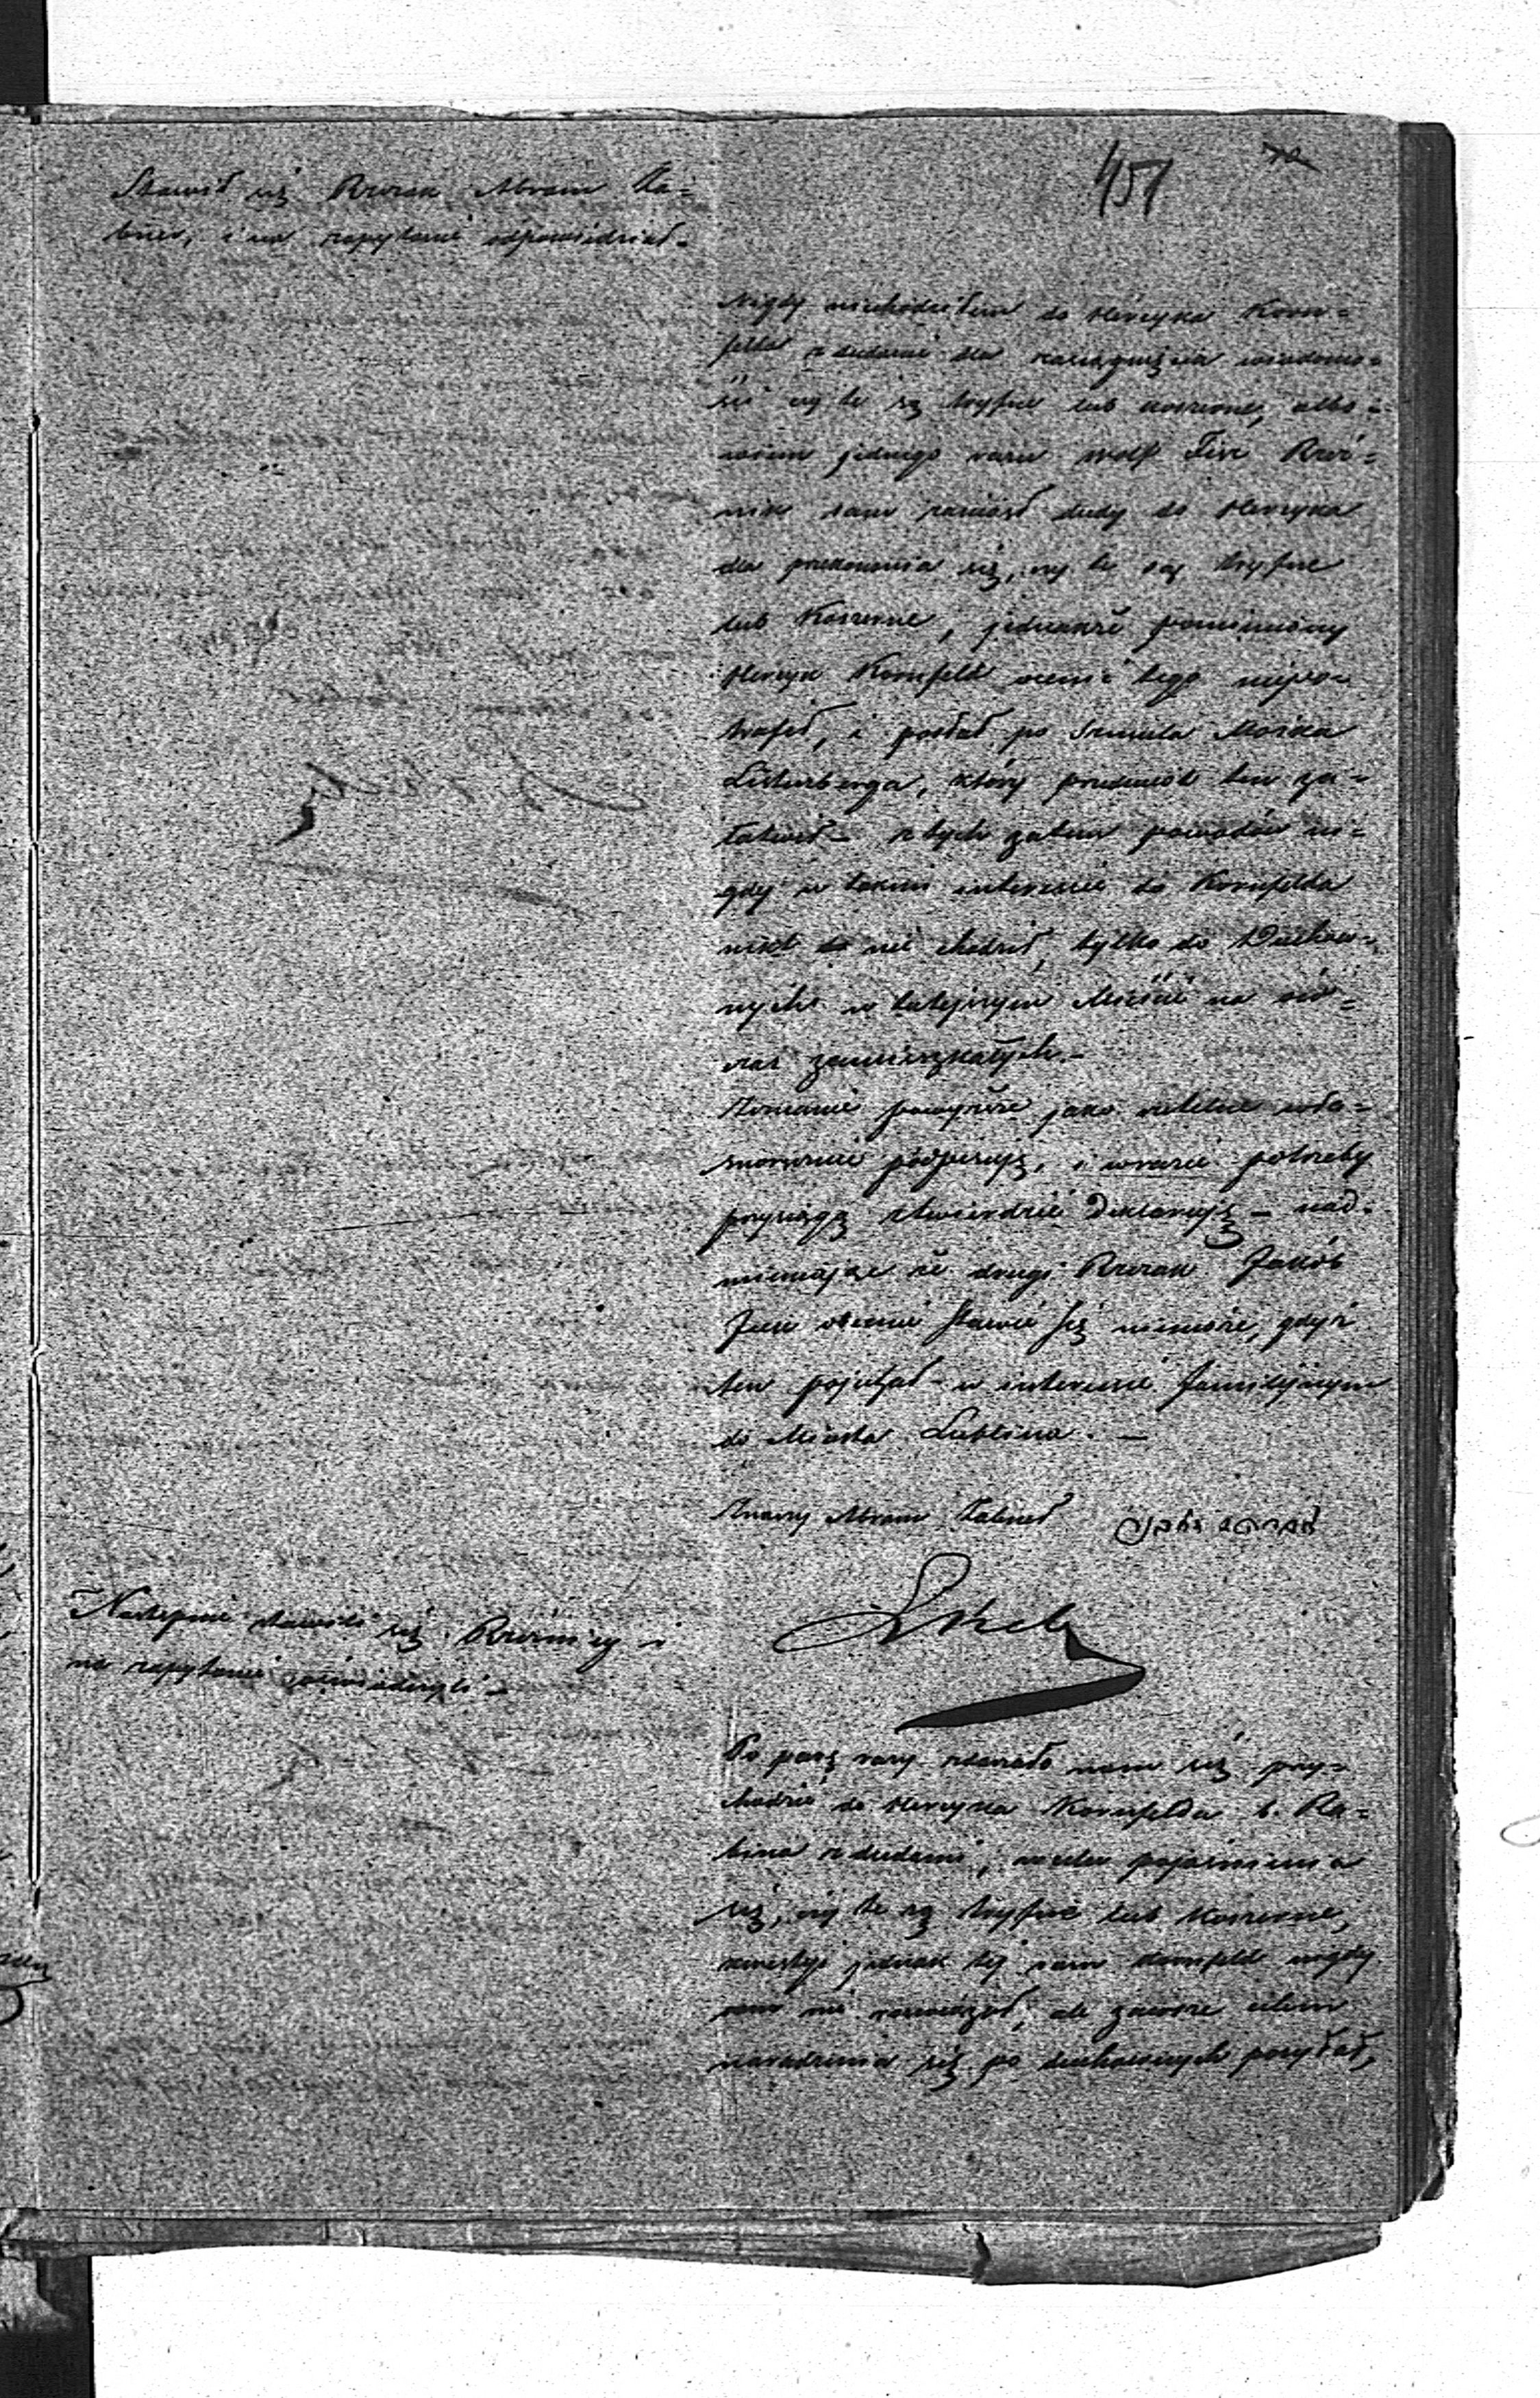 451
Stawił się Rzezak Abram Za=
bner, i na zapytanie odpowiedział.
Nigdy niechodziłem do Herszyka Korn=
felda z dudami dla zasiągnięcia wiadomo=
ści czy te są tryfne lub koszerne, albo=
wiem jednego razu Wolf Fire Rzeź=
nik sam zaniósł dudy do Herszyka
dla przekonania się, czy te są tryfne
lub Koszerne, jednakże pomieniony
Herszyk Kornfeld ocenić tego niepo=
trafił, i posłał po Szmula Moszka
który przedmiot ten za=
łatwił – z tych zatem powodów ni=
gdy w takim interessie do Kornfelda
nikt nie chodził, tylko do Duchow=
nych w tutejszym Mieście na ów=
czas zamieszkałych. –
Zeznanie powyższe jako rzetelne wła=
snoręcznie podpisuję, i w razie potrzeby
przysięgą stwierdzić deklaruję – nad=
mieniając że drugi Rzezak Jakób
obecnie stawić się niemoże, gdyż
ten pojechał w interessie familijnym
do Miasta Lublina. –
Abram
Następnie stawili się Rzeźnicy i
na zapytanie oświadczyli –
Po parę razy zdarzało nam się przy=
chodzić do Herszyka Kornfelda b. Ra=
bina z dudami, w celu pojaśnienia
się, czy te są tryfne lub Koszerne,
kwestyi jednak tej sam Kornfeld nigdy
nam nie rozwiązał, ale zawsze celem
naradzenia się po duchownych posyłał,